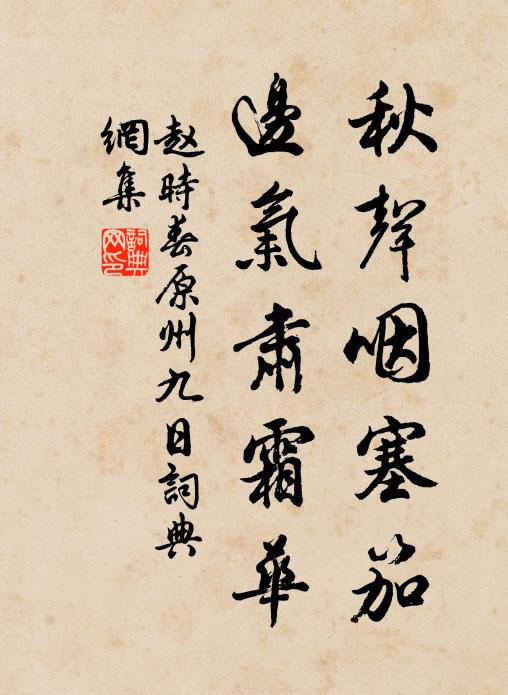 秋聲咽塞笳
邊氣肅霜華
趙時春原州九日詞典
網集
詞典
网印